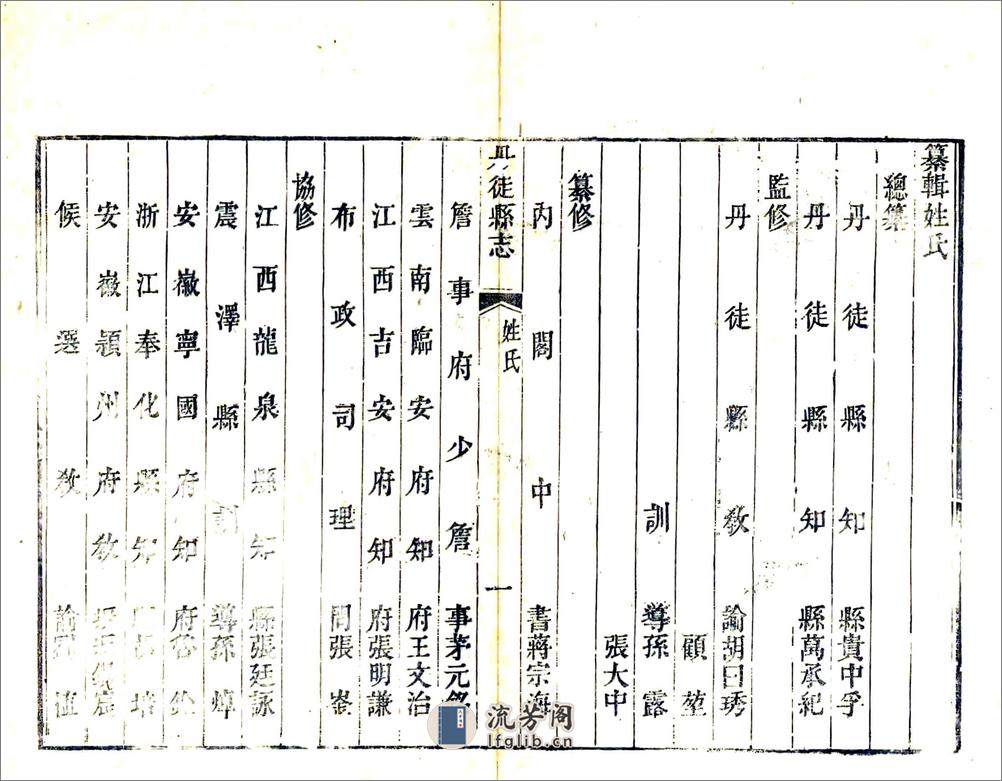 纂輯姓氏
總纂
丹徒縣知縣貴中孚
丹徒縣知縣萬承紀
監修
丹徒縣教諭胡曰琇
顧堃
訓導孫露
張大中
纂修
內閣中書蔣宗海
丹徒縣志
姓氏
一
詹事府少詹事茅元銘
雲南臨安府知府王文治
江西吉安府知府張明謙
布政司理問張崟
協修
江西龍泉縣知縣張廷詠
震澤縣訓導孫焯
安徽寧國府知府
浙江奉化縣知
安徽潁州府教
候選教諭
流芳阁
lfglib.cn